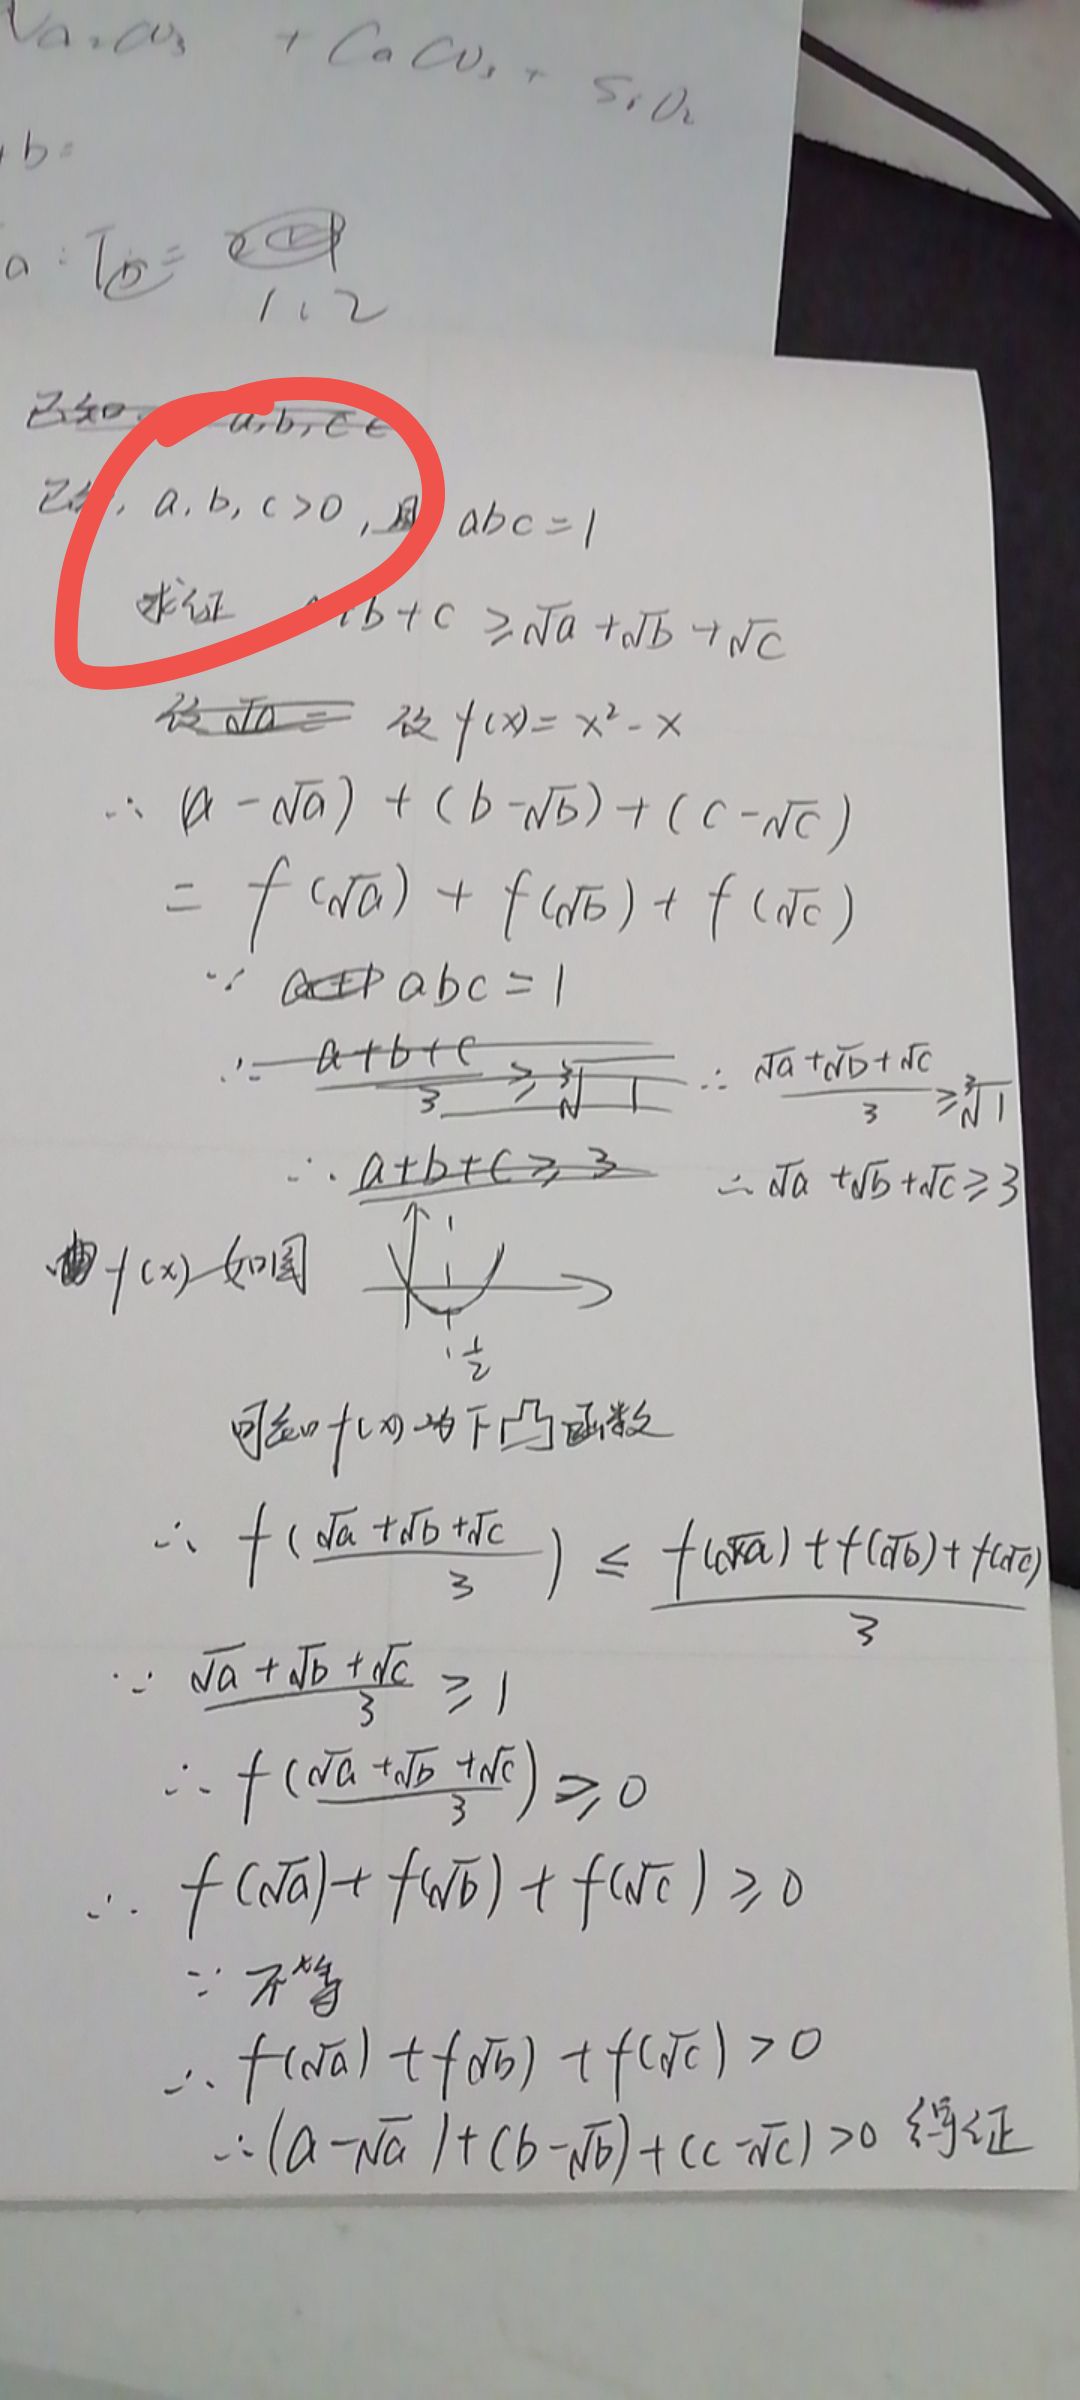 Na2CO3 + CaCO3 + SiO2
+b=
a : Tb =
1:2
已知 a,b,c ∈
已知, a, b, c > 0, 且 abc = 1
求证 a+b+c ≥ √a + √b + √c
设 √a = 设 f(x) = x² - x
∴ (a - √a) + (b - √b) + (c - √c)
= f(√a) + f(√b) + f(√c)
∵ abc = 1
∴ (a+b+c)/3 ≥ ∛1 ∴ (√a+√b+√c)/3 ≥ ∛1
∴ a+b+c ≥ 3 ∴ √a + √b + √c ≥ 3
f(x) 如图
1
1/2
可知 f(x) 为下凸函数
∴ f((√a+√b+√c)/3) ≤ (f(√a)+f(√b)+f(√c))/3
∵ (√a+√b+√c)/3 ≥ 1
∴ f((√a+√b+√c)/3) ≥ 0
∴ f(√a) + f(√b) + f(√c) ≥ 0
∵ 不等
∴ f(√a) + f(√b) + f(√c) > 0
∴ (a-√a) + (b-√b) + (c-√c) > 0 得证